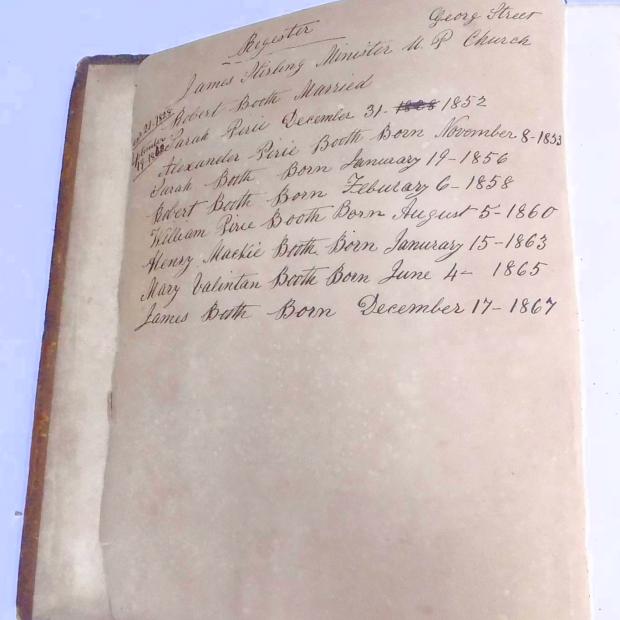 Register
Georg Street
James Stirling Minister U P Church
Robert Booth Married
Sarah Pirie December 31- 1852
Alexander Pirie Booth Born November 8-1853
Sarah Booth Born Januuary 19-1856
Robert Booth Born Febulary 6-1858
William Pirie Booth Born August 5-1860
Henry Mackie Booth Born Janurary 15-1863
Mary Valintan Booth Born June 4- 1865
James Booth Born December 17-1867